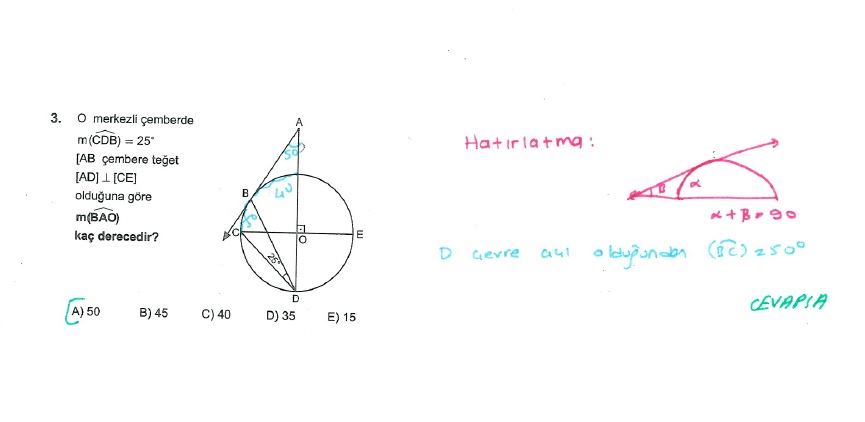 3. O merkezli çemberde
m(CDB) = 25°
[AB çembere teğet
[AD] ⊥ [CE]
olduğuna göre
m(BAO)
kaç derecedir?
A
50
B
40
50
C
O
E
25°
D
A) 50 B) 45 C) 40 D) 35 E) 15
Hatırlatma:
B α
α + B = 90
D çevre açı olduğundan (BC) = 50°
CEVAP A